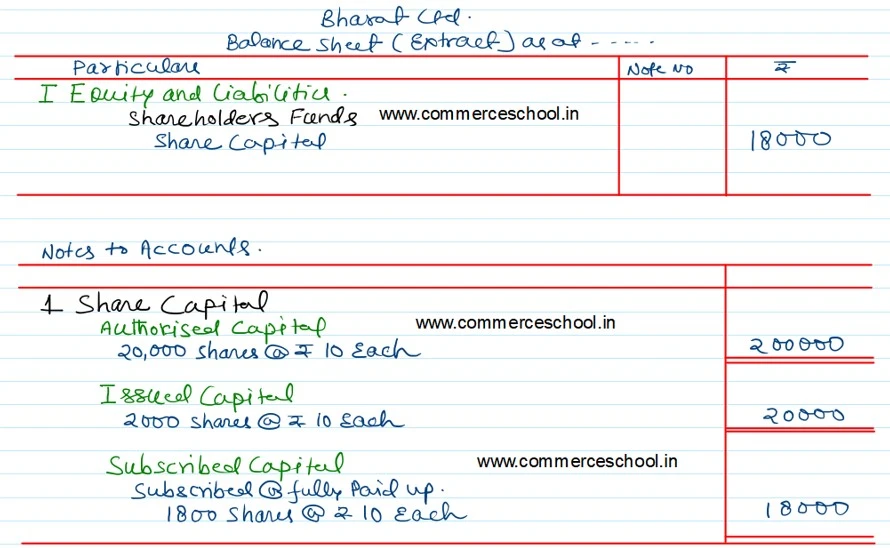 Bharat Ltd.
Balance Sheet (Extract) as at -----
Particulars Note No ₹
I Equity and Liabilities.
Shareholders Funds www.commerceschool.in
Share Capital 18000
Notes to Accounts.
1 Share Capital
Authorised Capital www.commerceschool.in
20,000 Shares @ ₹ 10 Each 200000
Issued Capital
2000 Shares @ ₹ 10 Each 20000
Subscribed Capital www.commerceschool.in
Subscribed @ fully Paid up.
1800 Shares @ ₹ 10 Each 18000